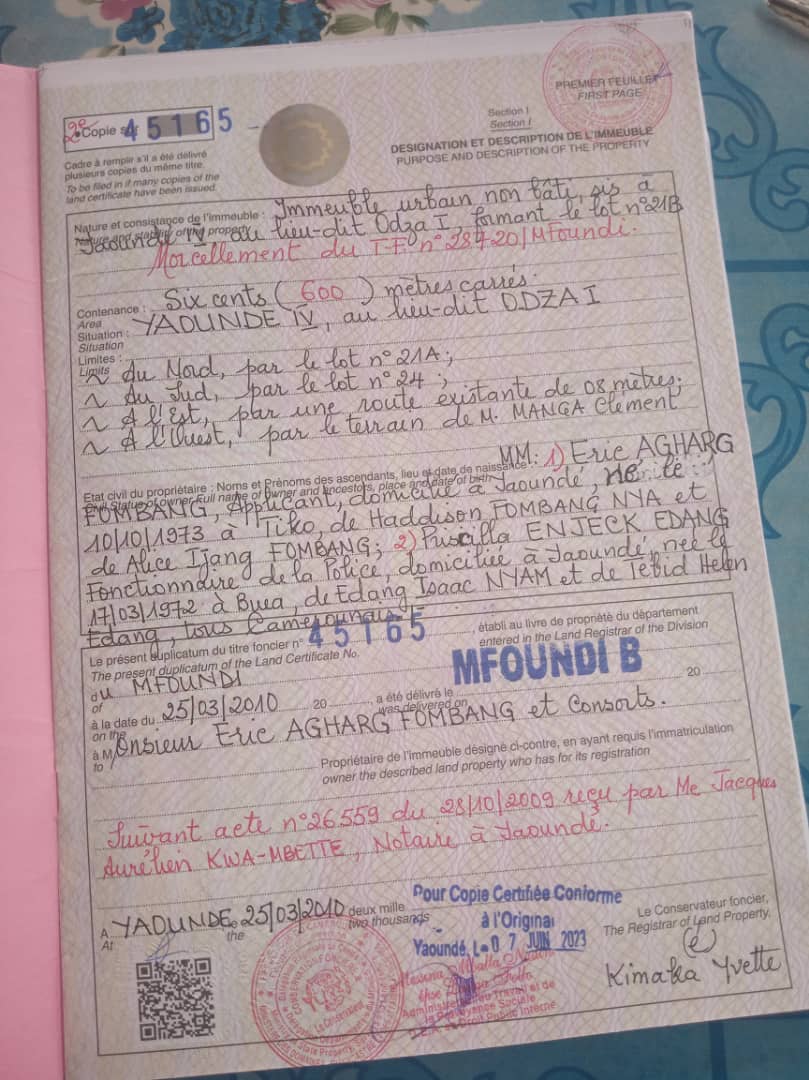 PREMIER FEUILLET
FIRST PAGE
2e Copie sur 45165
Cadre à remplir s'il a été délivré
plusieurs copies du même titre.
To be filed in if many copies of the
land certificate have been issued.
Section I
Section I
DESIGNATION ET DESCRIPTION DE L'IMMEUBLE
PURPOSE AND DESCRIPTION OF THE PROPERTY
Nature et consistance de l'immeuble : Immeuble urbain non bâti, sis à
Nature and stability of the property
Yaoundé IV, au lieu-dit Odza I, formant le lot n°21B
Morcellement du T.F. n°28720/Mfoundi.
Contenance : Six cents (600) mètres carrés.
Area
Situation : YAOUNDE IV, au lieu-dit ODZA I
Situation
Limites :
Limits
~ du Nord, par le lot n°21A ;
~ du Sud, par le lot n°24 ;
~ A l'Est, par une route existante de 08 mètres;
~ A l'Ouest, par le terrain de M. MANGA Clement
Etat civil du propriétaire : Noms et Prénoms des ascendants, lieu et date de naissance MM: 1) Eric AGHARG
Civil Status of owner Full name of owner and ancestors, place and date of birth
FOMBANG, Applicant, domicilié à Yaoundé, né le
10/10/1973 à Tiko, de Haddison FOMBANG NYA et
de Alice Ijang FOMBANG; 2) Priscilla ENJECK EDANG
Fonctionnaire de la Police, domiciliée à Yaoundé, née le
17/03/1972 à Buea, de Edang Isaac NYAM et de Tebid Helen
Edang, tous Camerounais.
Le présent duplicatum du titre foncier n° 45165, établi au livre de propriété du département
The present duplicatum of the Land Certificate No. entered in the Land Registrar of the Division
du MFOUNDI MFOUNDI B
of
à la date du 25/03/2010 20, a été délivré le 20
on the was delivered on
à Monsieur Eric AGHARG FOMBANG et Consorts.
to
Propriétaire de l'immeuble désigné ci-contre, en ayant requis l'immatriculation
owner the described land property who has for its registration
Suivant acte n°26559 du 28/10/2009 reçu par Me Jacques
Aurélien KWA-MBETTE, Notaire à Yaoundé.
A YAOUNDE 25/03/2010 deux mille
At the two thousands
Pour Copie Certifiée Conforme
à l'Original
Yaoundé, Le 07 JUIN 2023
Administrateur du Travail et de
la Prévoyance Sociale
Droit Public Interne
Le Conservateur foncier,
The Registrar of Land Property.
(é)
Kimaka Yvette